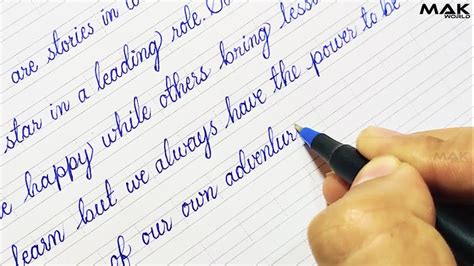 MAK
WORLD
are stories in
star in a leading role.
e happy while others bring
learn but we always have the power to be
of our own adventur
MAK
WORLD